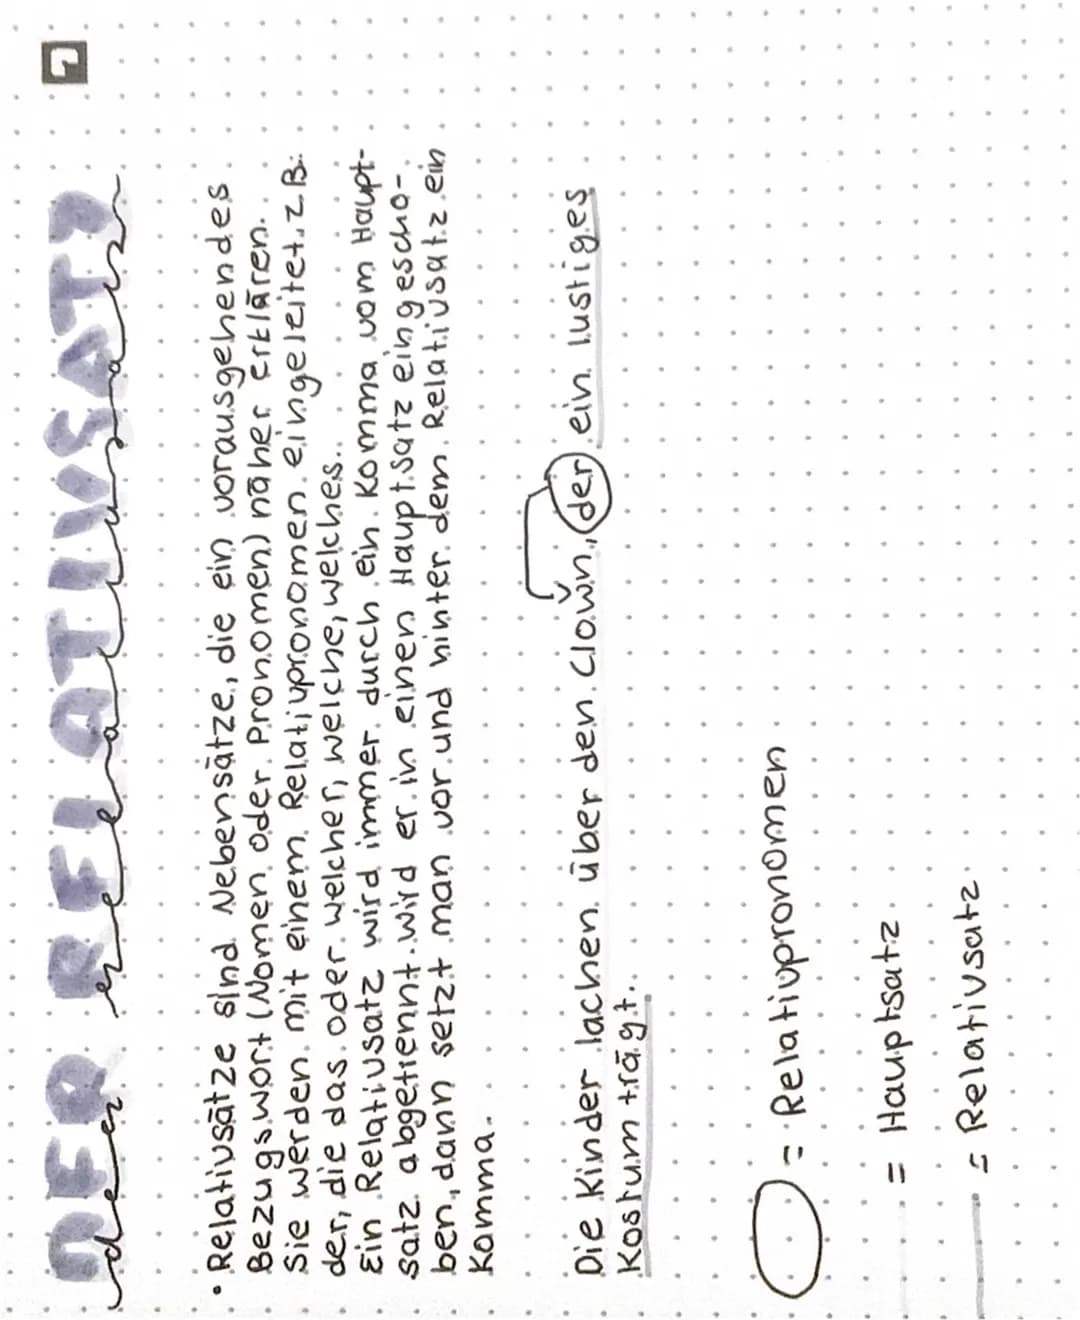 DER RELATIVSATZ
der relativsatz
1
• Relativsätze sind Nebensätze, die ein vorausgehendes
Bezugswort (Nomen oder Pronomen) näher erklären.
Sie werden mit einem Relativpronomen eingeleitet, z.B.
der, die das oder welcher, welche, welches.
Ein Relativsatz wird immer durch ein Komma vom Haupt-
satz abgetrennt. Wird er in einen Hauptsatz eingescho-
ben, dann setzt man vor und hinter dem Relativsatz ein
Komma.
Die Kinder lachen über den Clown, der ein lustiges
Kostüm trägt.
= Relativpronomen
= Hauptsatz
= Relativsatz